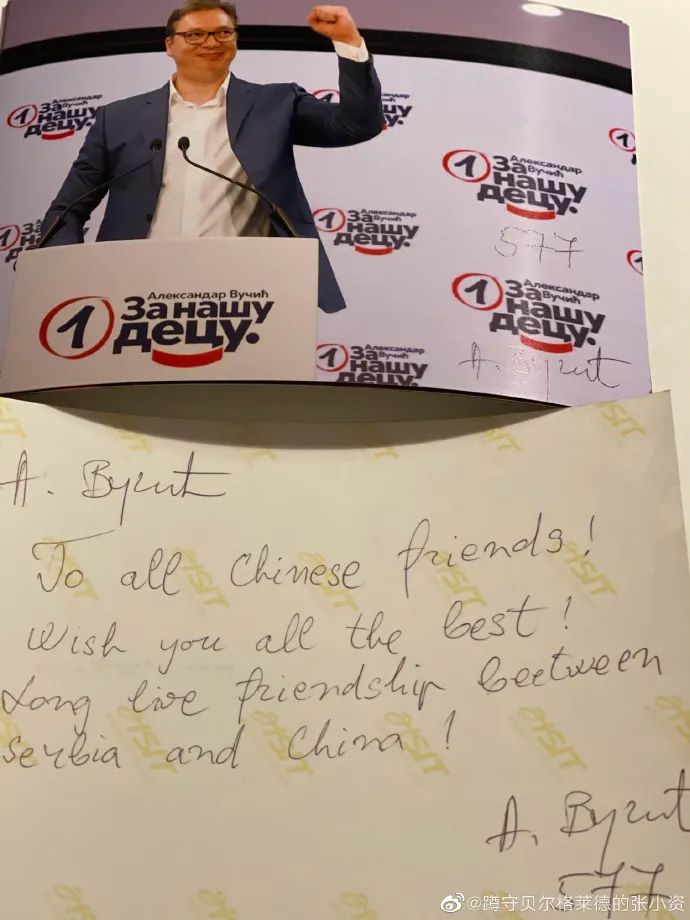 1 Александар Вучић
За нашу
децу.
1 Александар Вучић
За нашу
децу.
577
1 Александар Вучић
За нашу
децу.
1 Александар Вучић
За нашу
децу.
А. Вучић
1 Александар Вучић
За нашу
децу.
1 Александар Вучић
За нашу
децу.
А. Вучић
To all Chinese friends!
Wish you all the best!
Long live friendship beetween
Serbia and China!
А. Вучић
577
@蹲守贝尔格莱德的张小资